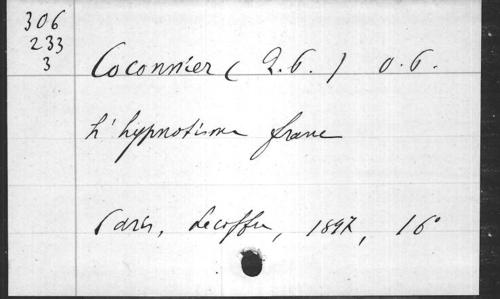 306
233
3
Coconnier (
L'hypnotisme franc
Paris, Lecoffre, 1897, 16°